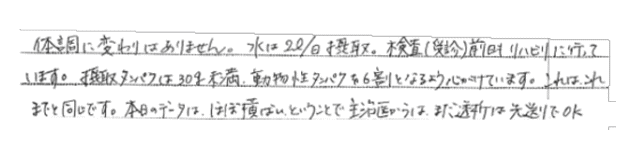 体調に変わりはありません。水は2ℓ/日摂取。検査(受診)前日もリハビリに行って
います。摂取タンパクは30g未満、動物性タンパクを6割となるよう心がけています。これはこれ
までと同じです。本日のデータは、ほぼ横ばいということで主治医からは、まだ透析は先送りでOK